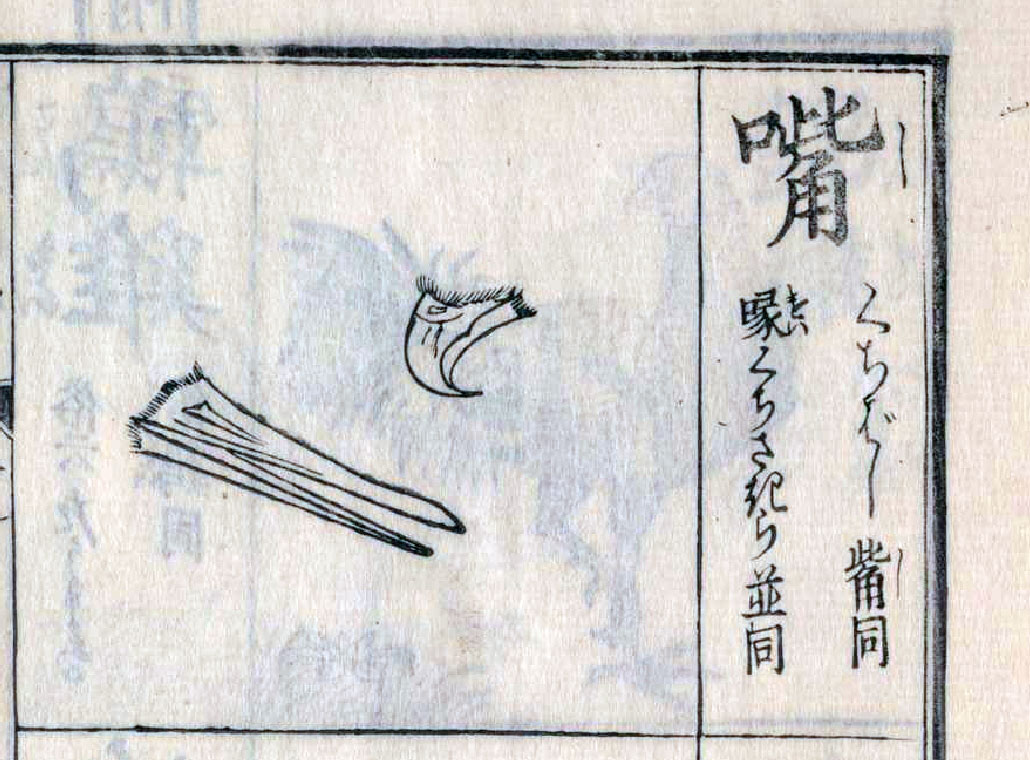 嘴
し
くちばし 觜同
し
喙くちさきら並同